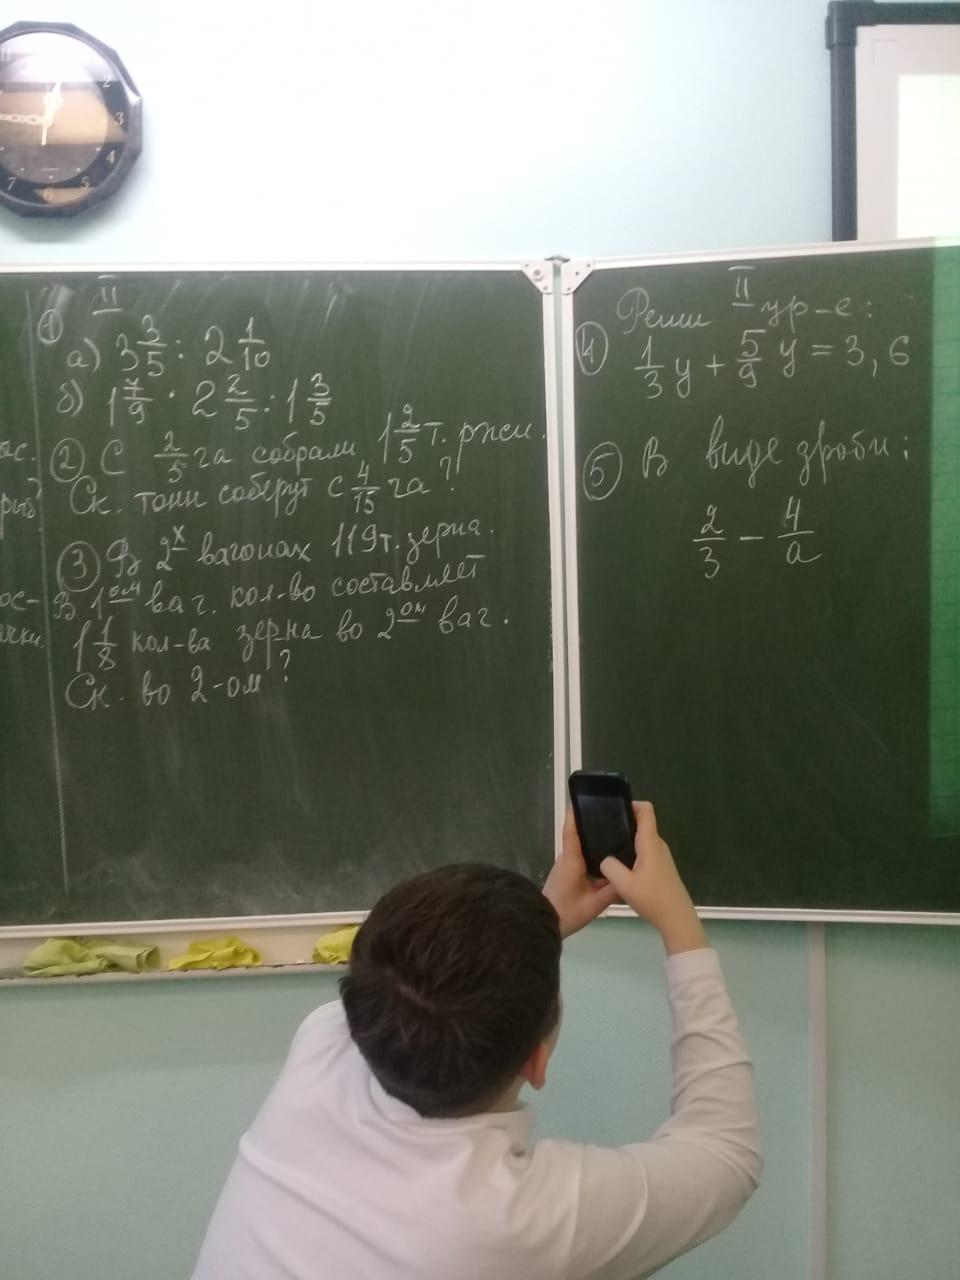 2
3
4
5
6
7
II
① а) 3 3/5 : 2 1/10
б) 1 7/9 · 2 2/5 : 1 3/5
② С 2/5 га собрали 1 2/5 т. ржи.
Ск. тонн соберут с 4/15 га?
③ В 2х вагонах 119 т. зерна.
В 1ом ваг. кол-во составляет
1 1/8 кол-ва зерна во 2ом ваг.
Ск. во 2-ом?
II
④ Реши ур-е:
1/3 y + 5/9 y = 3,6
⑤ В виде дроби:
2/3 - 4/a